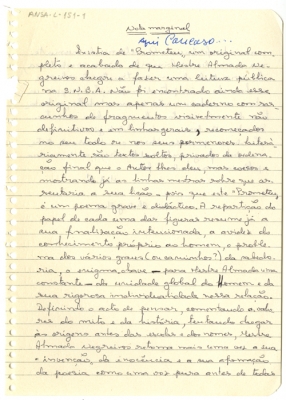 ANSA-L-151-1
Nota marginal
Aqui Cáucaso...
Existia de "Prometeu, um original com-
pleto e acabado de que Mestre Almada Ne-
greiros chegou a fazer uma leitura pública
na S.N.B.A. Não foi encontrado ainda esse
original mas apenas um caderno com ras-
cunhos de fragmentos visivelmente não
definitivos e em linhas gerais, recomeçados
no seu todo ou nos seus pormenores. Literà-
riamente são textos soltos, privados da ordena-
ção final que o Autor lhes deu, mas coesos e
mostrando já as linhas mestras sobre que as-
sentaria a sua lição, pois que este "Prometeu,
é um poema grave e didáctico. A repartição do
papel de cada uma das figuras resume já a
sua finalização intencionada, a avidez do
conhecimento próprio ao homem, o proble-
ma dos vários graus (ou caminhos?) da sabedo-
ria, o enigma, chave - para Mestre Almada uma
constante - da unidade global do Homem e da
sua rigorosa individualidade nessa relação.
Definindo o acto de pensar, comentando a valo-
res do mito e da história, tentando chegar
às origens antes das eras e do nome, Mestre
Almada Negreiros retoma mais uma vez a sua
invenção, da inocência e a sua afirmação
da poesia como uma voz pura antes de todas